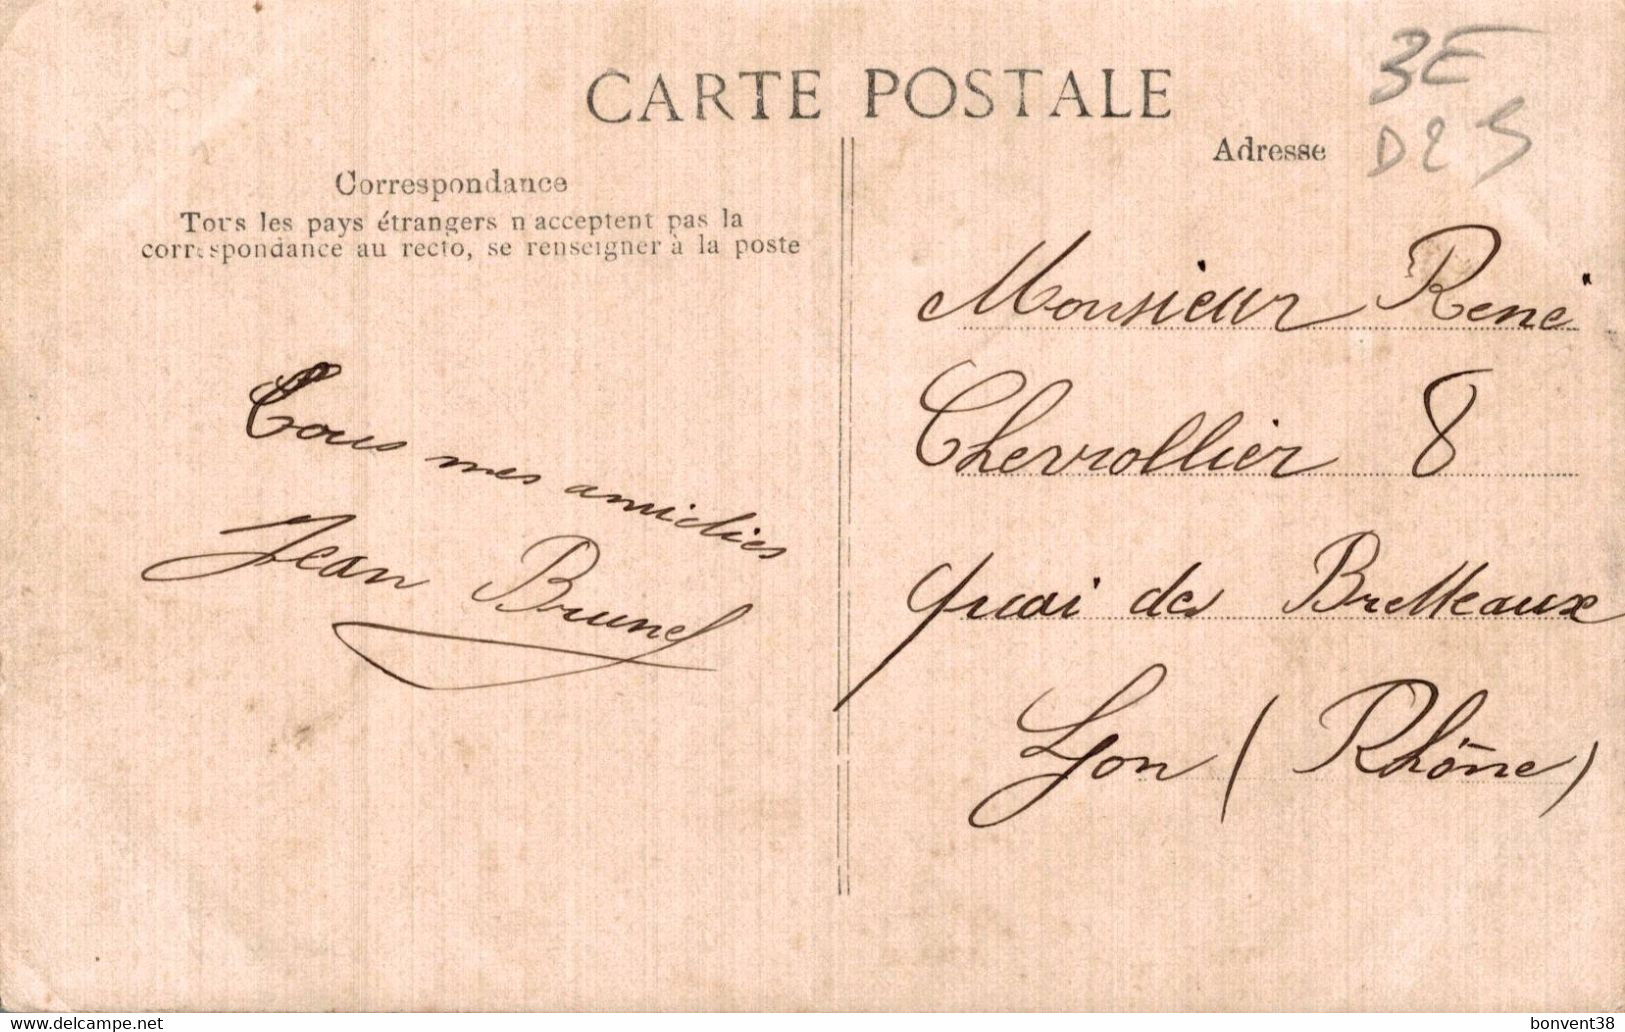 CARTE POSTALE
3E
D25
Adresse
Correspondance
Tous les pays étrangers n acceptent pas la
correspondance au recto, se renseigner à la poste
Tous mes amidiés
Jean Brunel
Monsieur René
Chevrollier 8
quai des Bretteaux
Lyon (Rhône)
www.delcampe.net
bonvent38